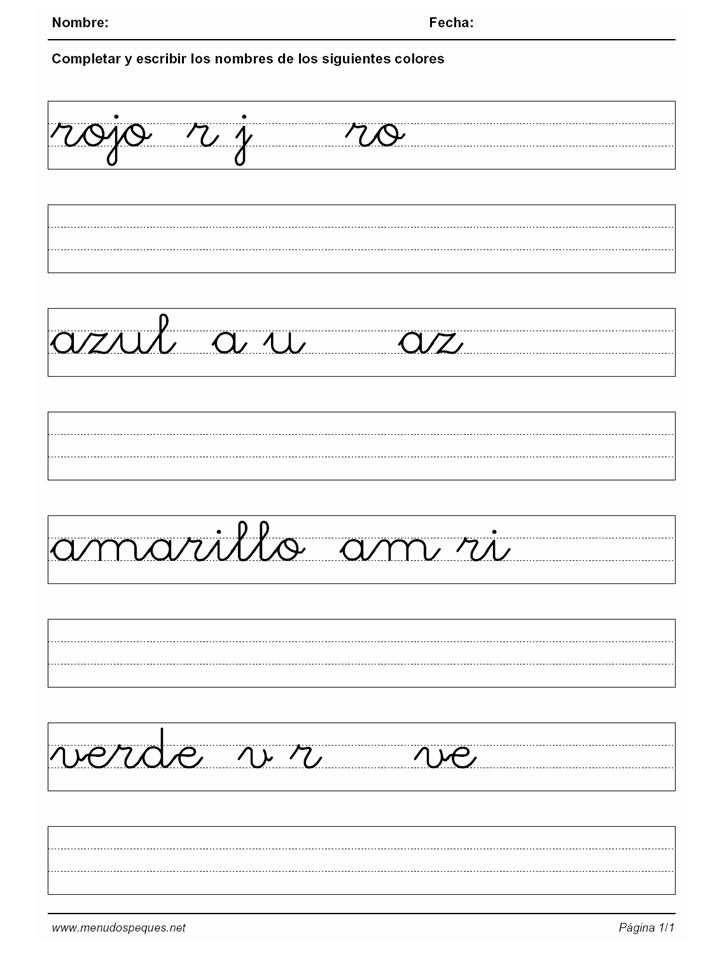 Nombre: Fecha:
Completar y escribir los nombres de los siguientes colores
rojo r j ro
azul a u az
amarillo am ri
verde v r ve
www.menudospeques.net Página 1/1